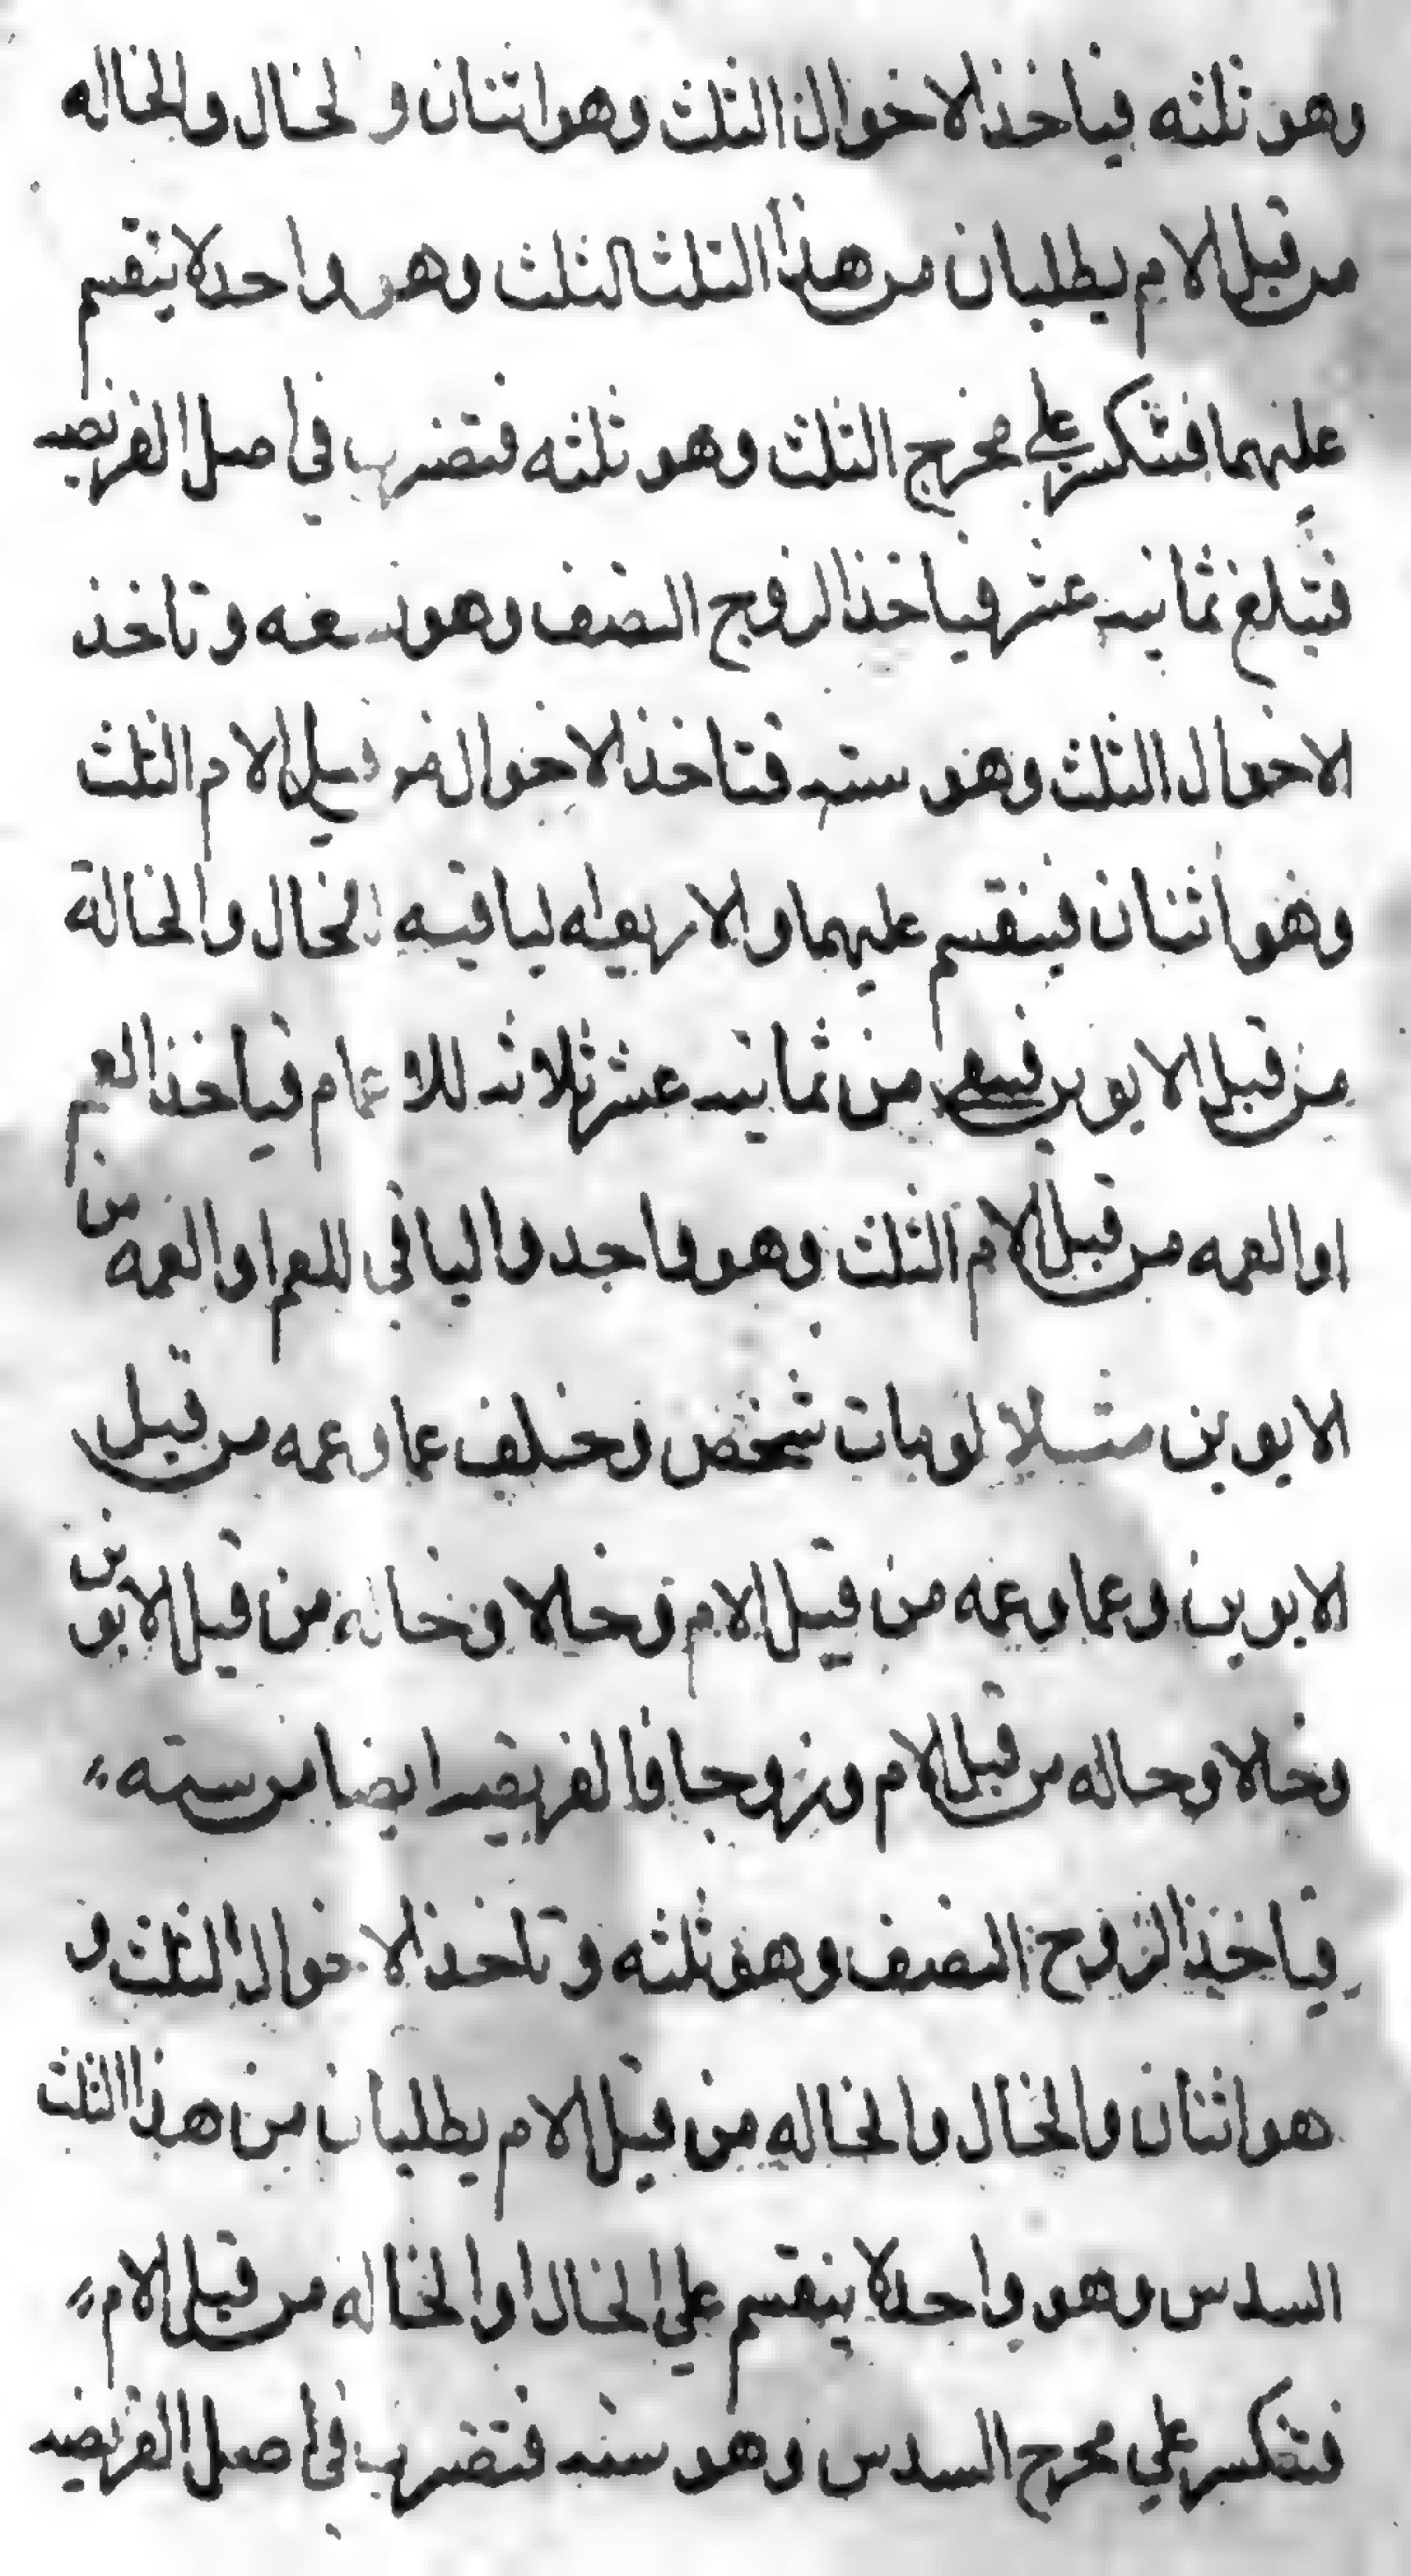 وهو ثلثه فياخذ الاخوال الثلث وهو اثنان والخال والخاله
من قبل الام يطلبان من هذا الثلث الثلث وهو واحد لا ينقسم
عليهما فتنكسر علي مخرج الثلث وهو ثلثه فتضرب في اصل الفريضه
فتبلغ ثمانيه عشر فياخذ الزوج النصف وهو تسعه وتاخذ
الاخوال الثلث وهو سته فتاخذ الاخوال من قبل الام الثلث
وهو اثنان فينقسم عليهما والاربعه الباقيه للخال والخالة
من قبل الابوين فبقي من ثمانيه عشر ثلاثه للاعمام فياخذ العم
او العمه من قبل الام الثلث وهو واحد والباقي للعم او العمه من
الابوين مثلا لو مات شخص وخلف عما وعمه من قبل
الابوين وعما وعمه من قبل الام وخالا وخاله من قبل الابوين
وخالا وخاله من قبل الام وزوجا فالفريضه ايضا من سته
فياخذ الزوج النصف وهو ثلثه وتاخذ الاخوال الثلث و
هو اثنان والخال والخاله من قبل الام يطلبان من هذا الثلث
السدس وهو واحد لا ينقسم علي الخال او الخاله من قبل الام
فتنكسر علي مخرج السدس وهو سته فتضرب في اصل الفريضه